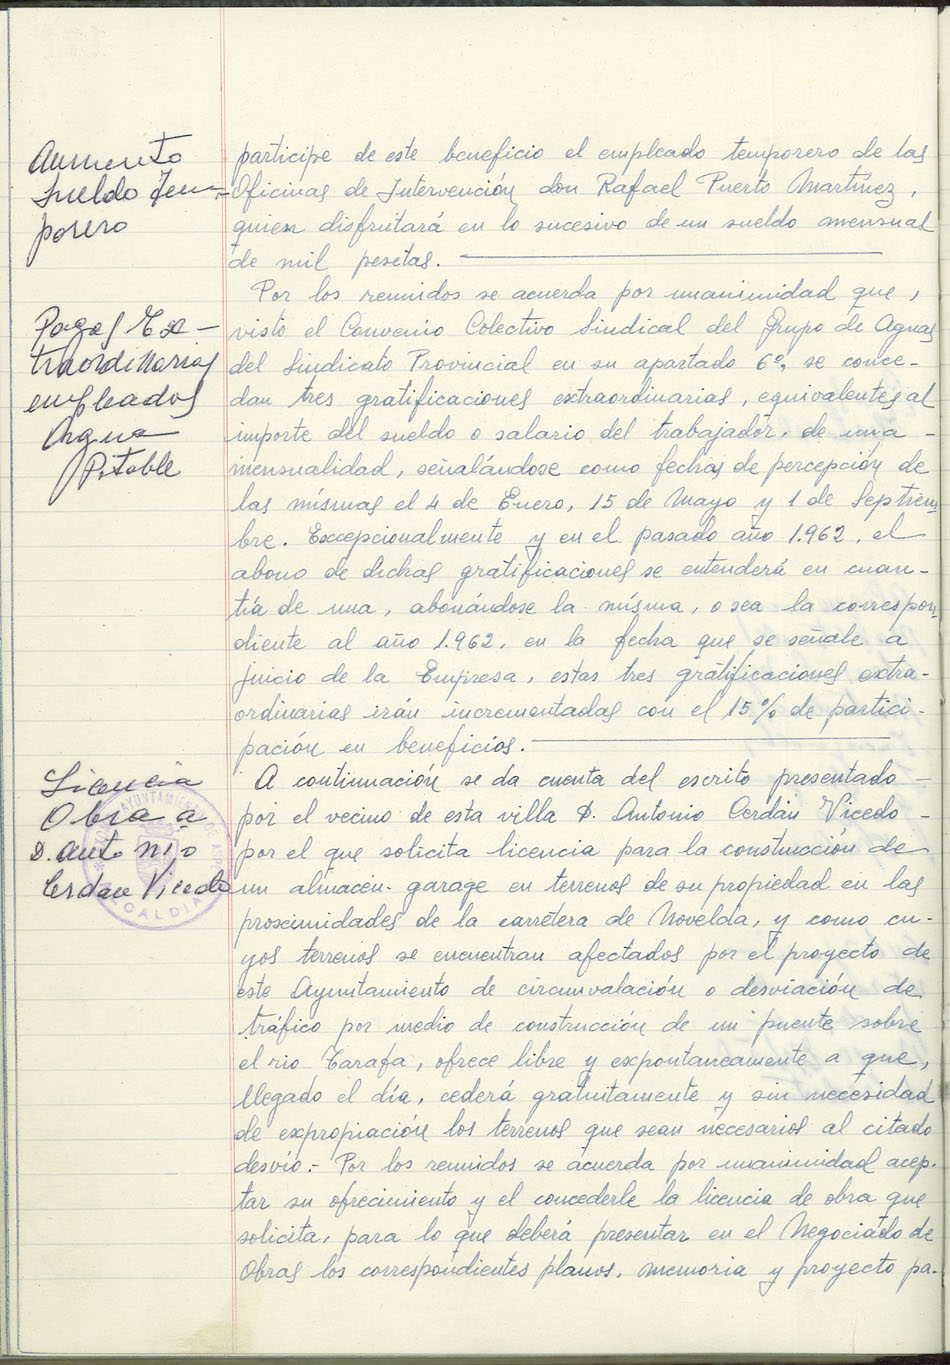 Aumento
sueldo Tem-
porero
participe de este beneficio el empleado temporero de las
Oficinas de Intervención don Rafael Puerto Martínez,
quien disfrutará en lo sucesivo de un sueldo mensual
de mil pesetas.
Pagas Ex-
traordinarias
empleados
Agua
Potable
Por los reunidos se acuerda por unanimidad que,
visto el Convenio Colectivo Sindical del Grupo de Aguas
del Sindicato Provincial en su apartado 6º, se conce-
dan tres gratificaciones extraordinarias, equivalentes al
importe del sueldo o salario del trabajador, de una -
mensualidad, señalándose como fechas de percepción de
las mísmas el 4 de Enero, 15 de Mayo y 1 de Septiem-
bre. Excepcionalmente y en el pasado año 1.962, el
abono de dichas gratificaciones se entenderá en cuan-
tía de una, abonándose la mísma, o sea la correspon-
diente al año 1.962, en la fecha que se señale a
juicio de la Empresa, estas tres gratificaciones extra-
ordinarias irán incrementadas con el 15% de partici-
pación en beneficios.
Licencia
Obra a
D. Antonio
Cerdán Vicedo
AYUNTAMIENTO DE ASPE
ALCALDIA
A continuación se da cuenta del escrito presentado -
por el vecino de esta villa D. Antonio Cerdán Vicedo -
por el que solicita licencia para la construcción de
un almacén-garage en terrenos de su propiedad en las
proximidades de la carretera de Novelda, y como cu-
yos terrenos se encuentran afectados por el proyecto de
este Ayuntamiento de circunvalación o desviación de
tráfico por medio de construcción de un puente sobre
el rio Tarafa, ofrece libre y expontaneamente a que,
llegado el día, cederá gratuitamente y sin necesidad
de expropiación los terrenos que sean necesarios al citado
desvío.- Por los reunidos se acuerda por unanimidad acep-
tar su ofrecimiento y el concederle la licencia de obra que
solicita, para lo que deberá presentar en el Negociado de
Obras los correspondientes planos, memoria y proyecto pa-